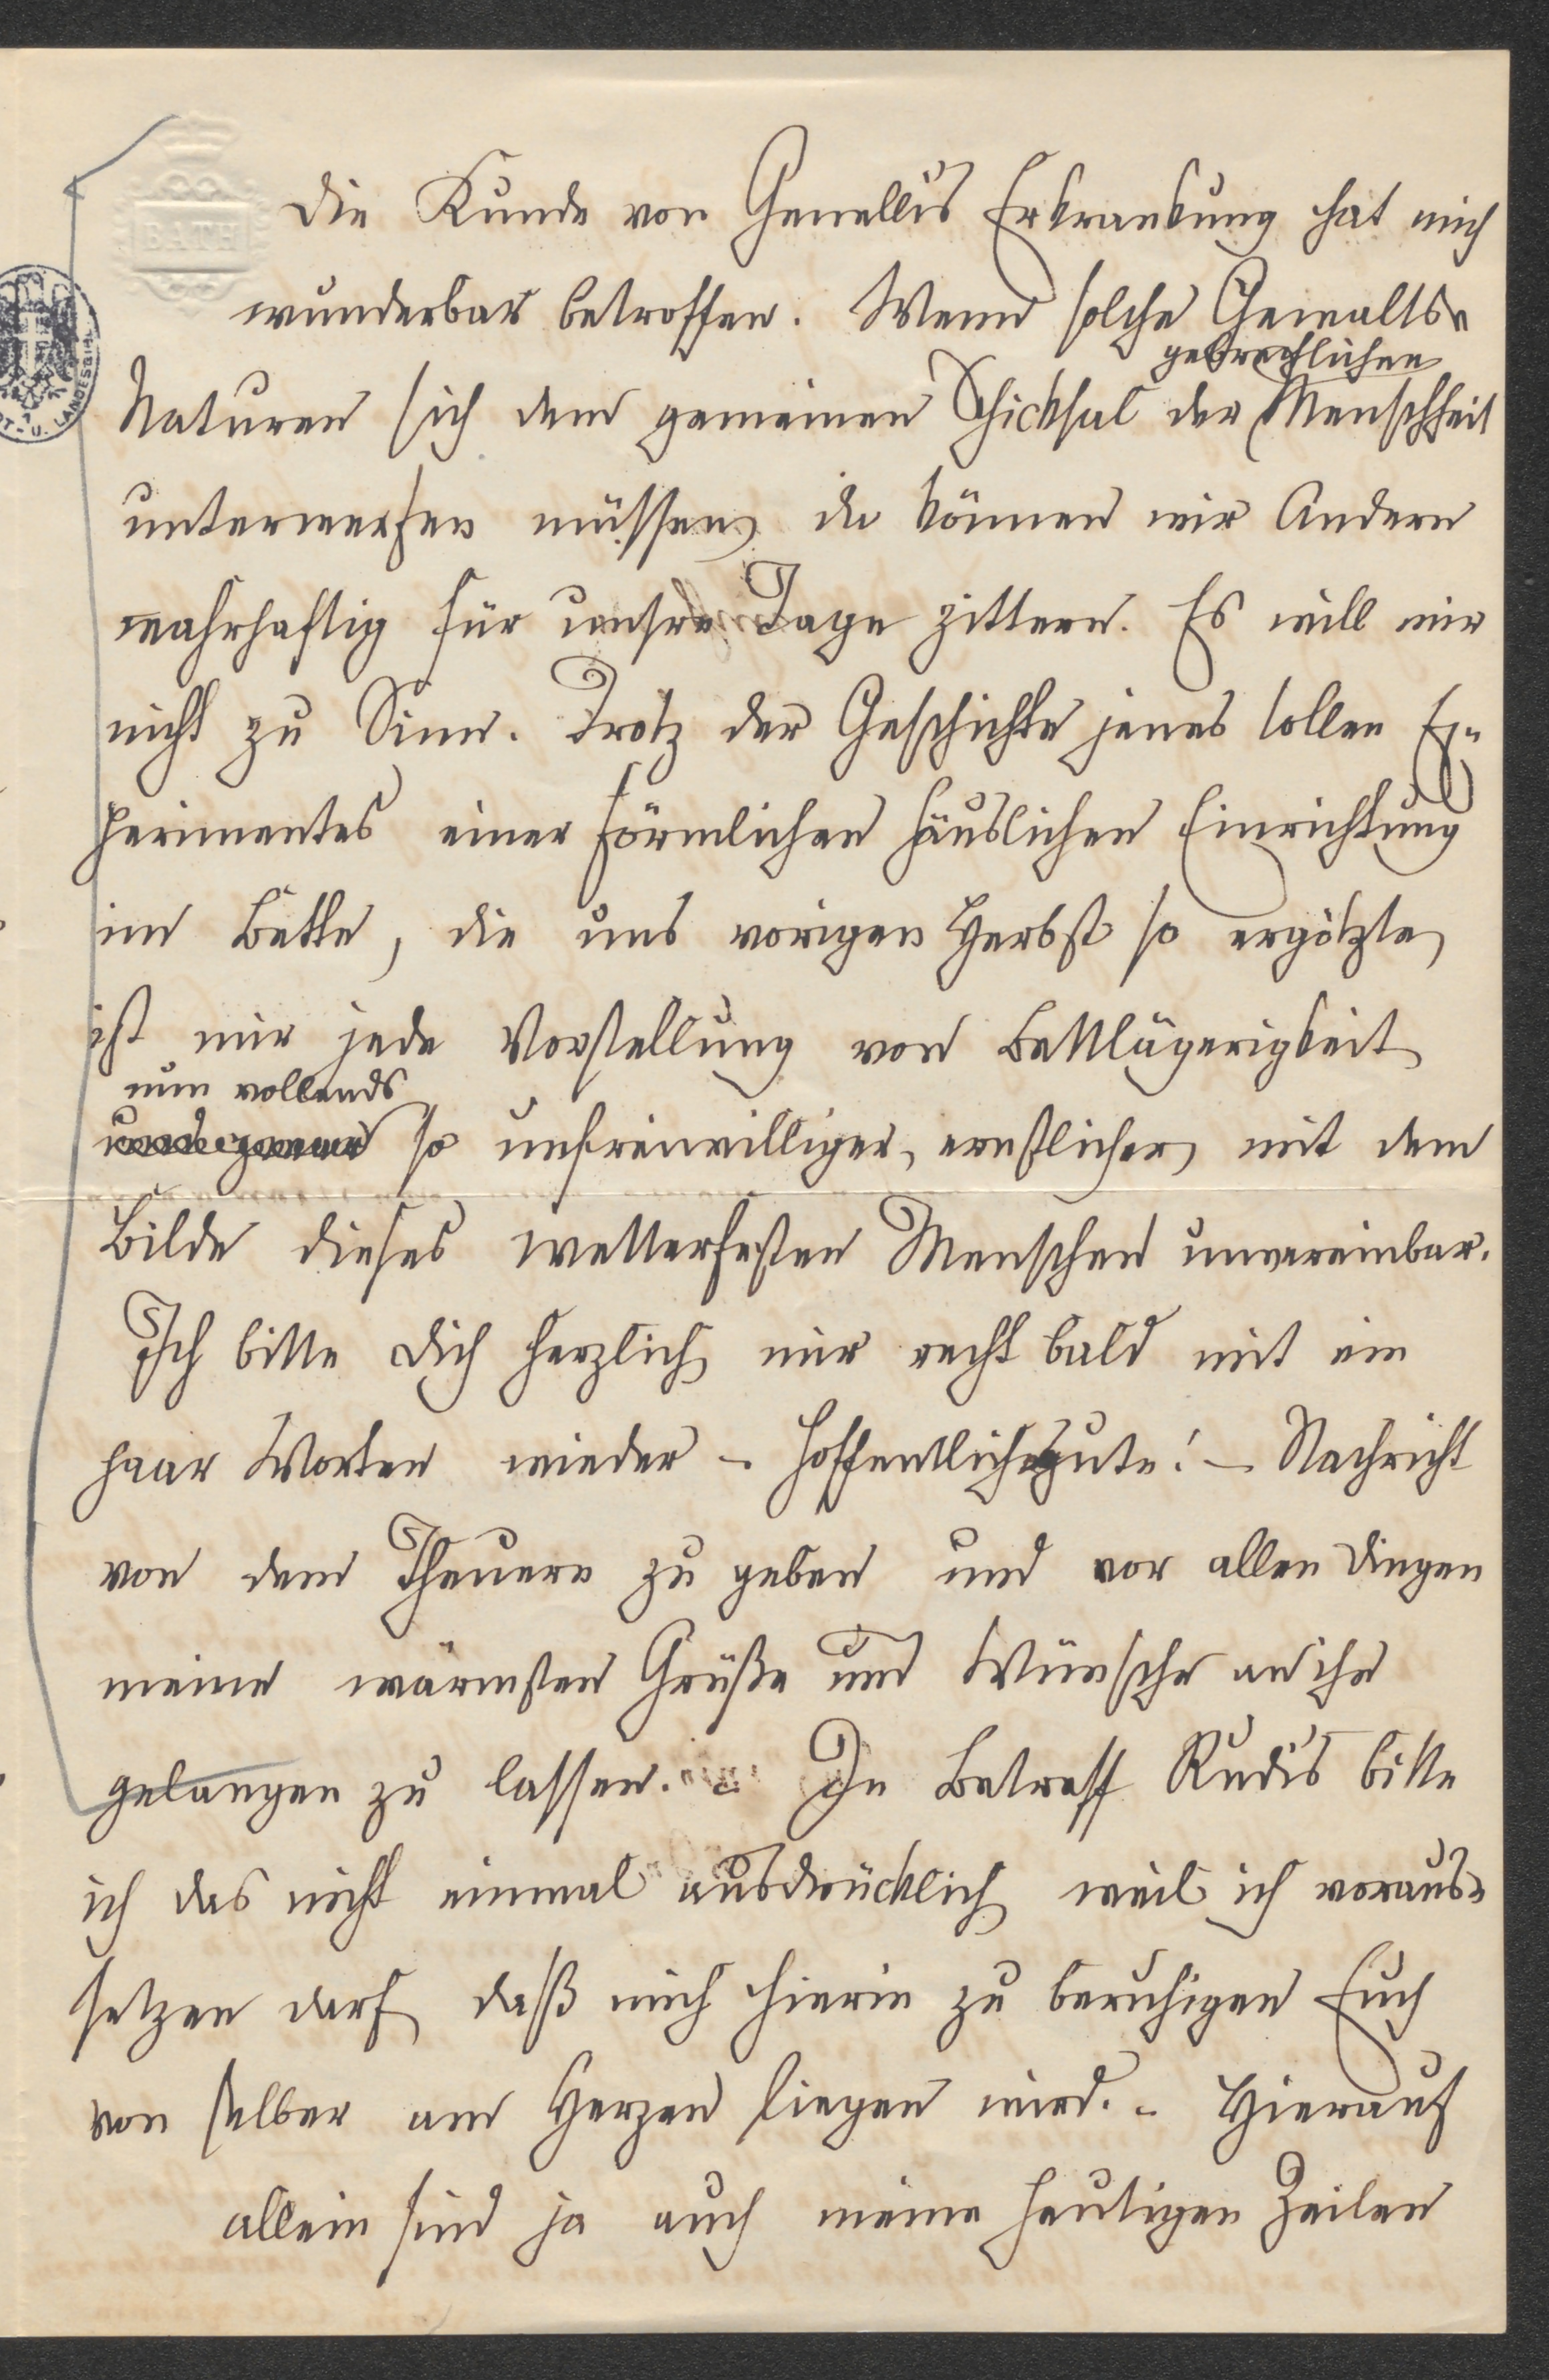 BATH
Die Kunde von Genelli's Erkrankung hat mich
wunderbar betroffen. Wenn solche Gewalts-
gebrechlichen
Naturen sich dem gemeinen Schicksal der Menschheit
unterwerfen müssen, da können wir Andern
wahrhaftig für unsre Tage zittern. Es will mir
nicht zu Sinn. Trotz der Geschichte jenes tollen Ex-
perimentes einer förmlichen häuslichen Einrichtung
im Bette, die uns vorigen Herbst so ergötzte,
ist mir jede Vorstellung von Bettlägerigkeit,
nun vollends
so unfreiwilliger, ernstlicher, mit dem
Bilde dieses wetterfesten Menschen unvereinbar.
Ich bitte Dich herzlich, mir recht bald mit ein
paar Worten wieder – hoffentlich gute! – Nachricht
von dem Theuern zu geben und vor allen Dingen
meine wärmsten Grüße und Wünsche an ihn
gelangen zu lassen. – In Betreff Rudi's bitte
ich das nicht einmal ausdrücklich, weil ich voraus-
setzen darf, daß mich hierin zu beruhigen Euch
von selber am Herzen liegen wird. – Hierauf
allein sind ja auch meine heutigen Zeilen